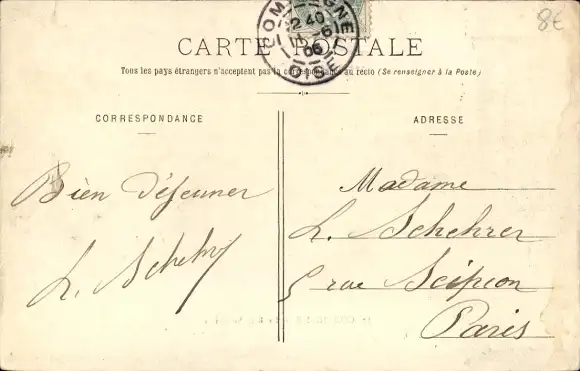 8€
COMPIEGNE
2 40
11 -6
06
OISE
CARTE POSTALE
Tous les pays étrangers n'acceptent pas la correspondance au recto (Se renseigner à la Poste)
CORRESPONDANCE
ADRESSE
Bien Déjeuner
Madame
L. Schehrer
5 rue Scipion
Paris